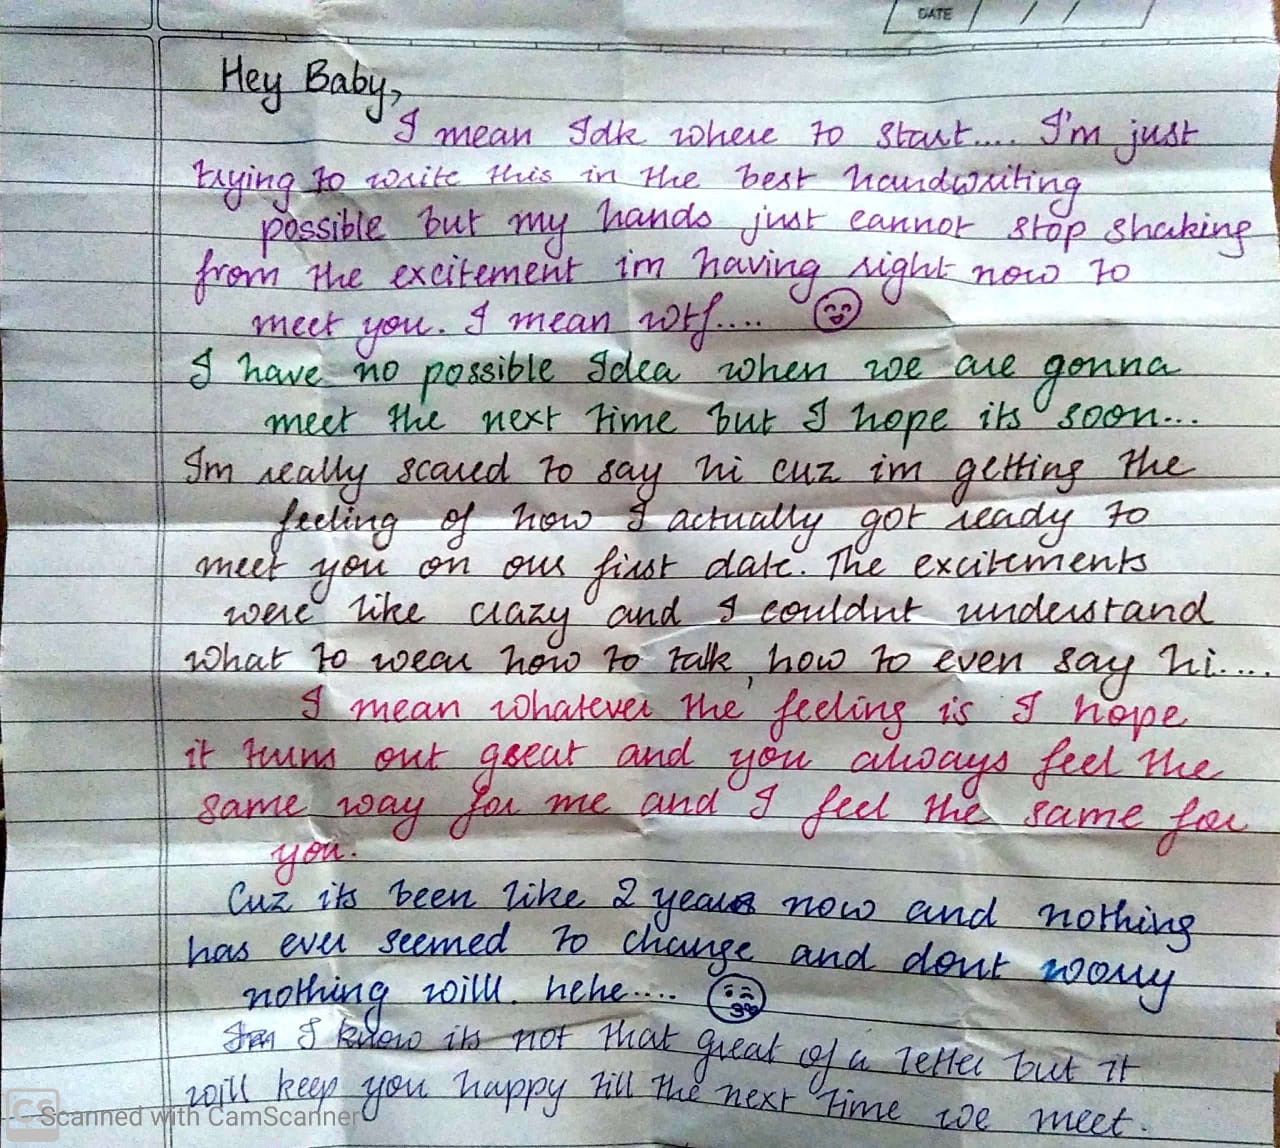 DATE / /
Hey Baby,
I mean Idk where to start.... I'm just
trying to write this in the best handwriting
possible but my hands just cannot stop shaking
from the excitement im having right now to
meet you. I mean wtf....
I have no possible Idea when we are gonna
meet the next time but I hope its soon...
Im really scared to say hi cuz im getting the
feeling of how I actually got ready to
meet you on our first date. The excitements
were like crazy and I couldnt understand
what to wear how to talk, how to even say hi....
I mean whatever the feeling is I hope
it turns out great and you always feel the
same way for me and I feel the same for
you.
Cuz its been like 2 years now and nothing
has ever seemed to change and dont worry
nothing willl. hehe....
I know its not that great of a letter but it
will keep you happy till the next time we meet.
CS Scanned with CamScanner